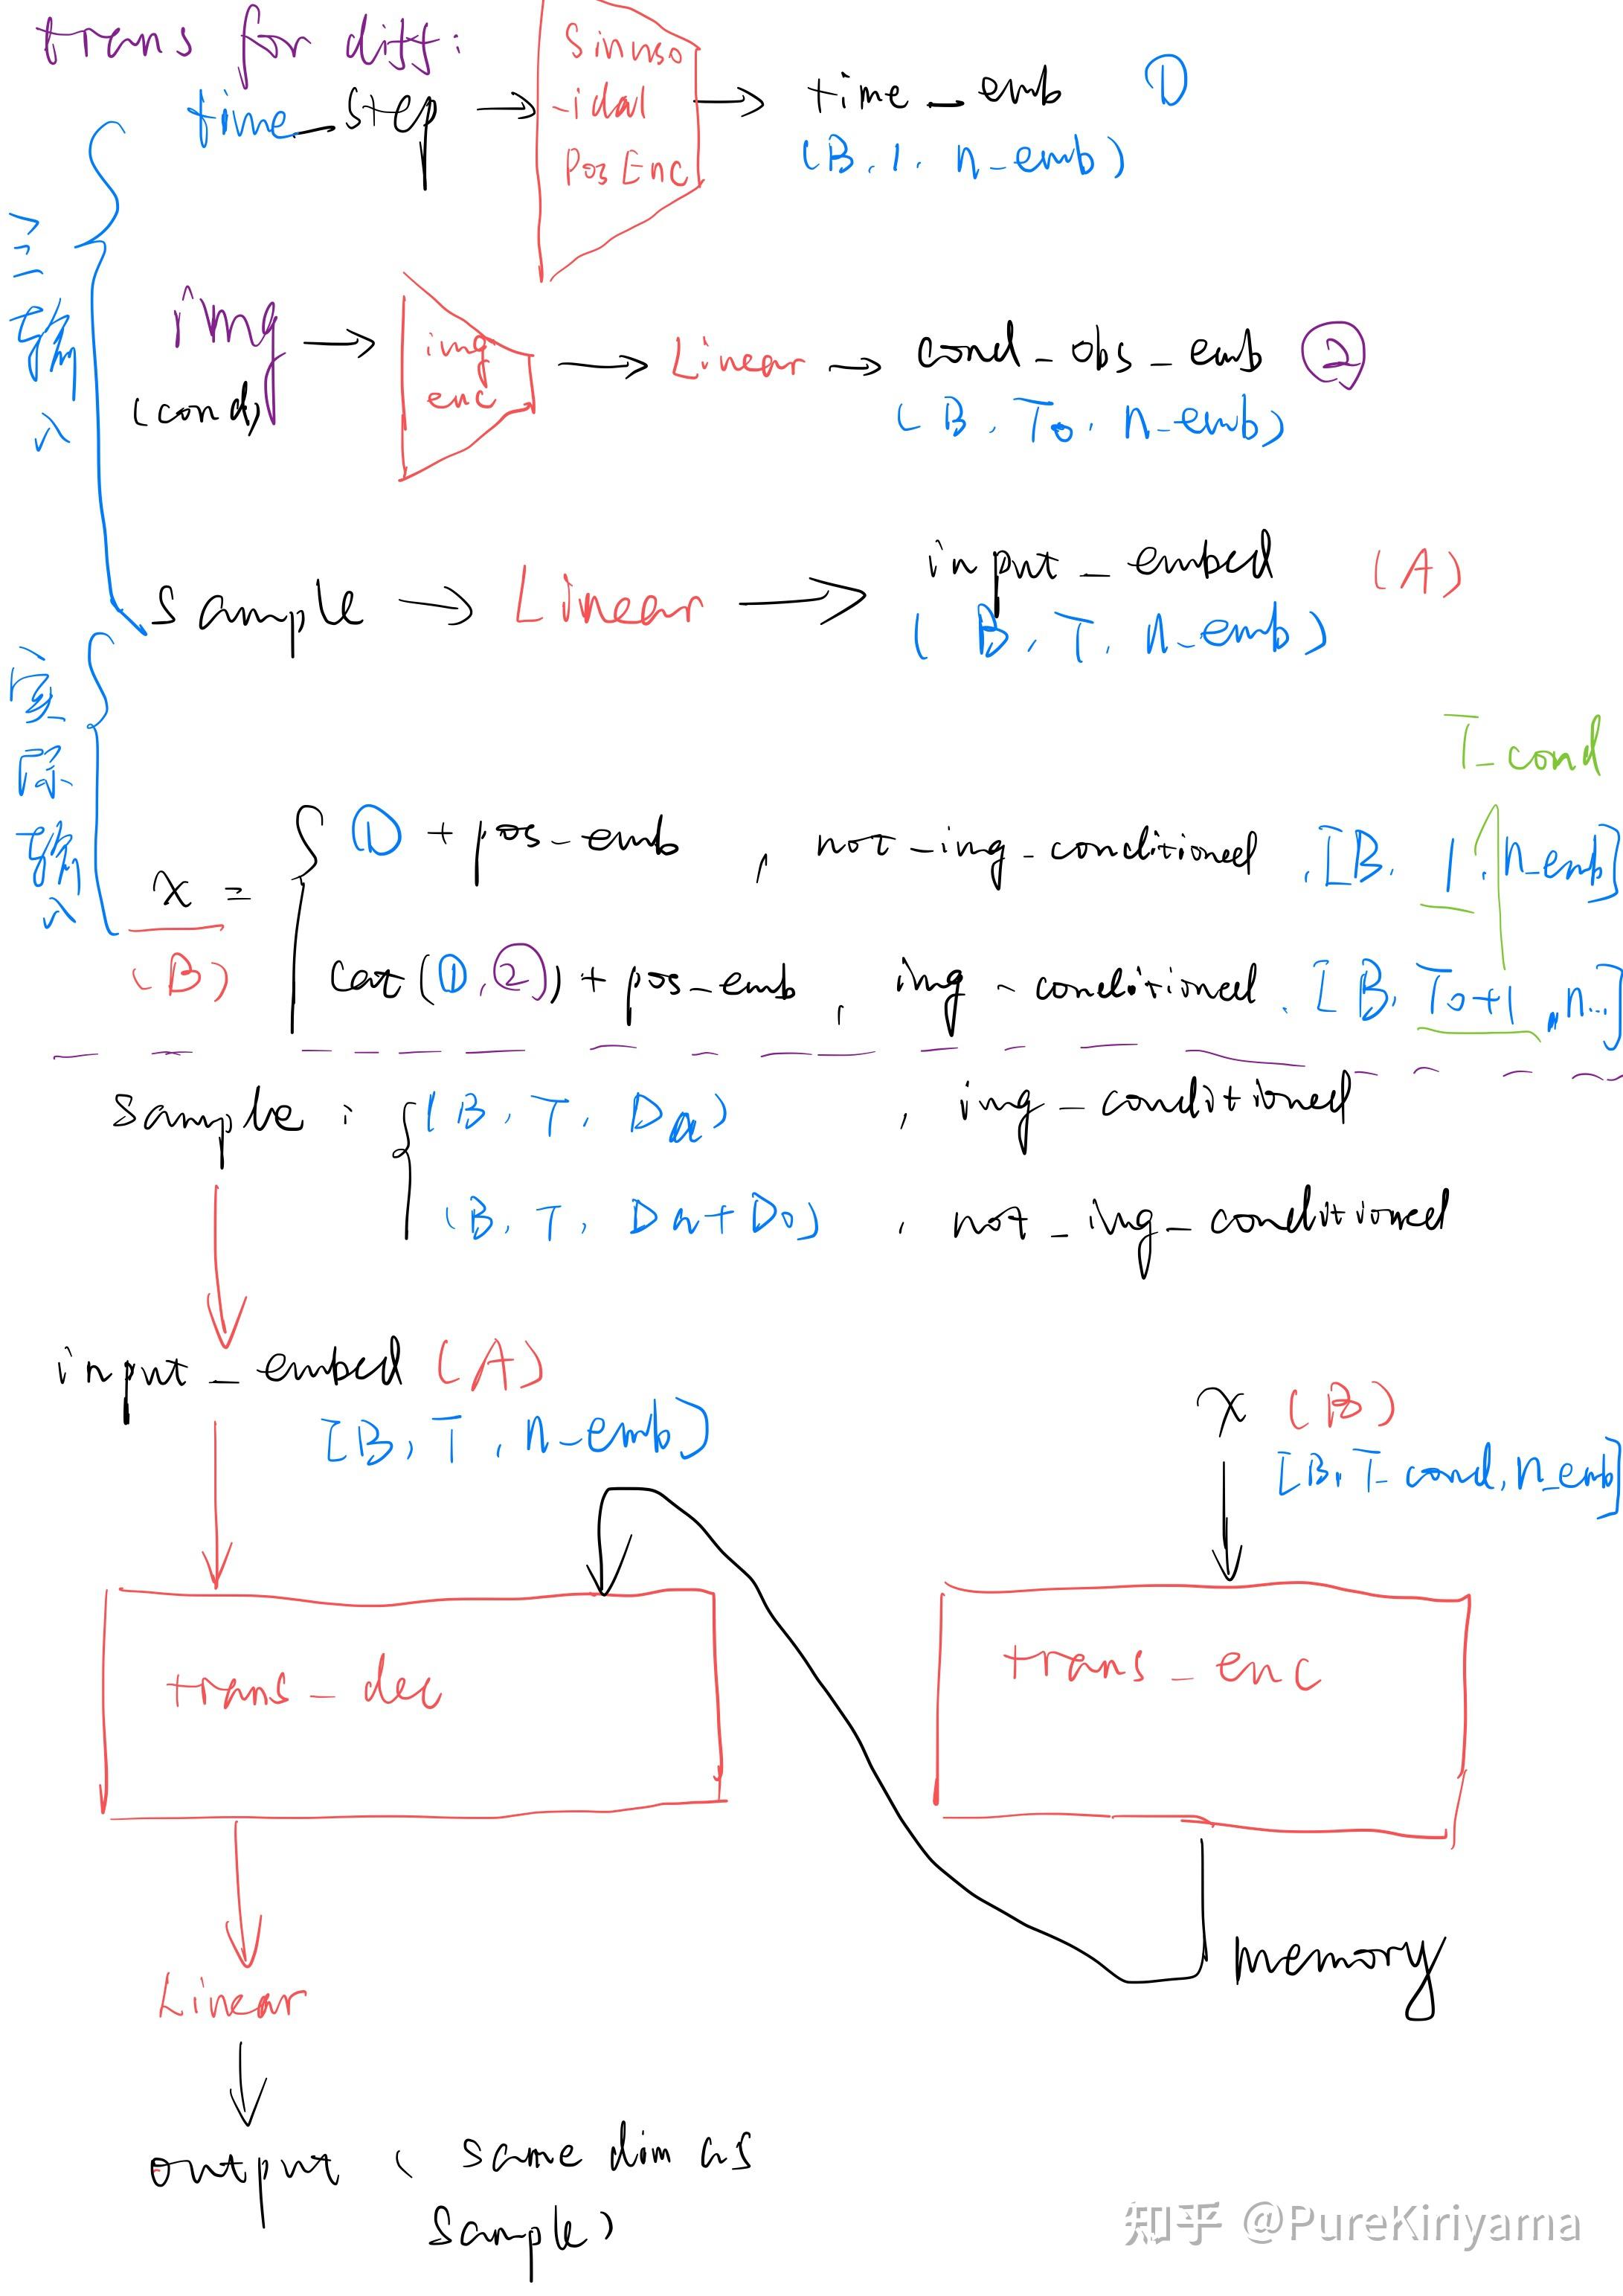 trans for diff:
time_step → Sinuso-idal Pos Enc → time_emb ①
(B, 1, n_emb)
三输入
img → img enc → Linear → cond_obs_emb ②
(cond)
(B, To, n_emb)
sample → Linear → input_embed (A)
(B, T, n_emb)
实际输入
T_cond
x = { ① + pos_emb , not_img_conditioned . [B, 1, n_emb]
(B)
cat(①,②) + pos_emb , img-conditioned . [B, To+1, n...]
sample : { (B, T, Da) , img_conditioned
(B, T, Da+Do) , not_img_conditioned
input_embed (A)
[B, T, n_emb]
x (B)
[B, T_cond, n_emb]
trans_dec
trans_enc
memory
Linear
output (same dim as
sample)
知乎 @PureKiriyama